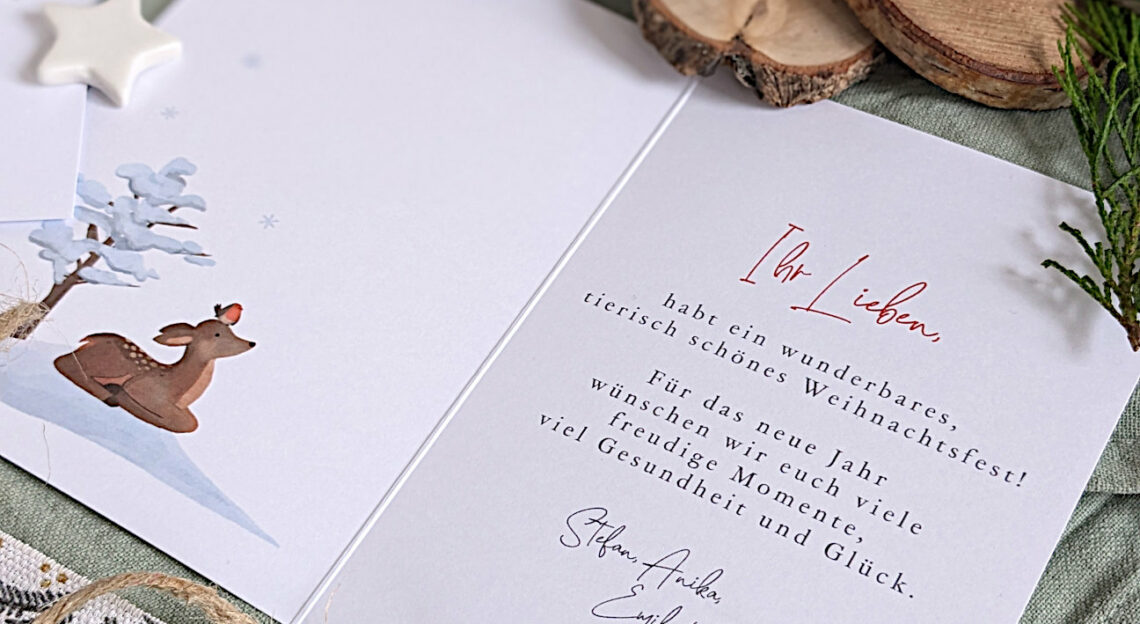 Ihr Lieben,
habt ein wunderbares,
tierisch schönes Weihnachtsfest!
Für das neue Jahr
wünschen wir euch viele
freudige Momente,
viel Gesundheit und Glück.
Stefan, Anika,